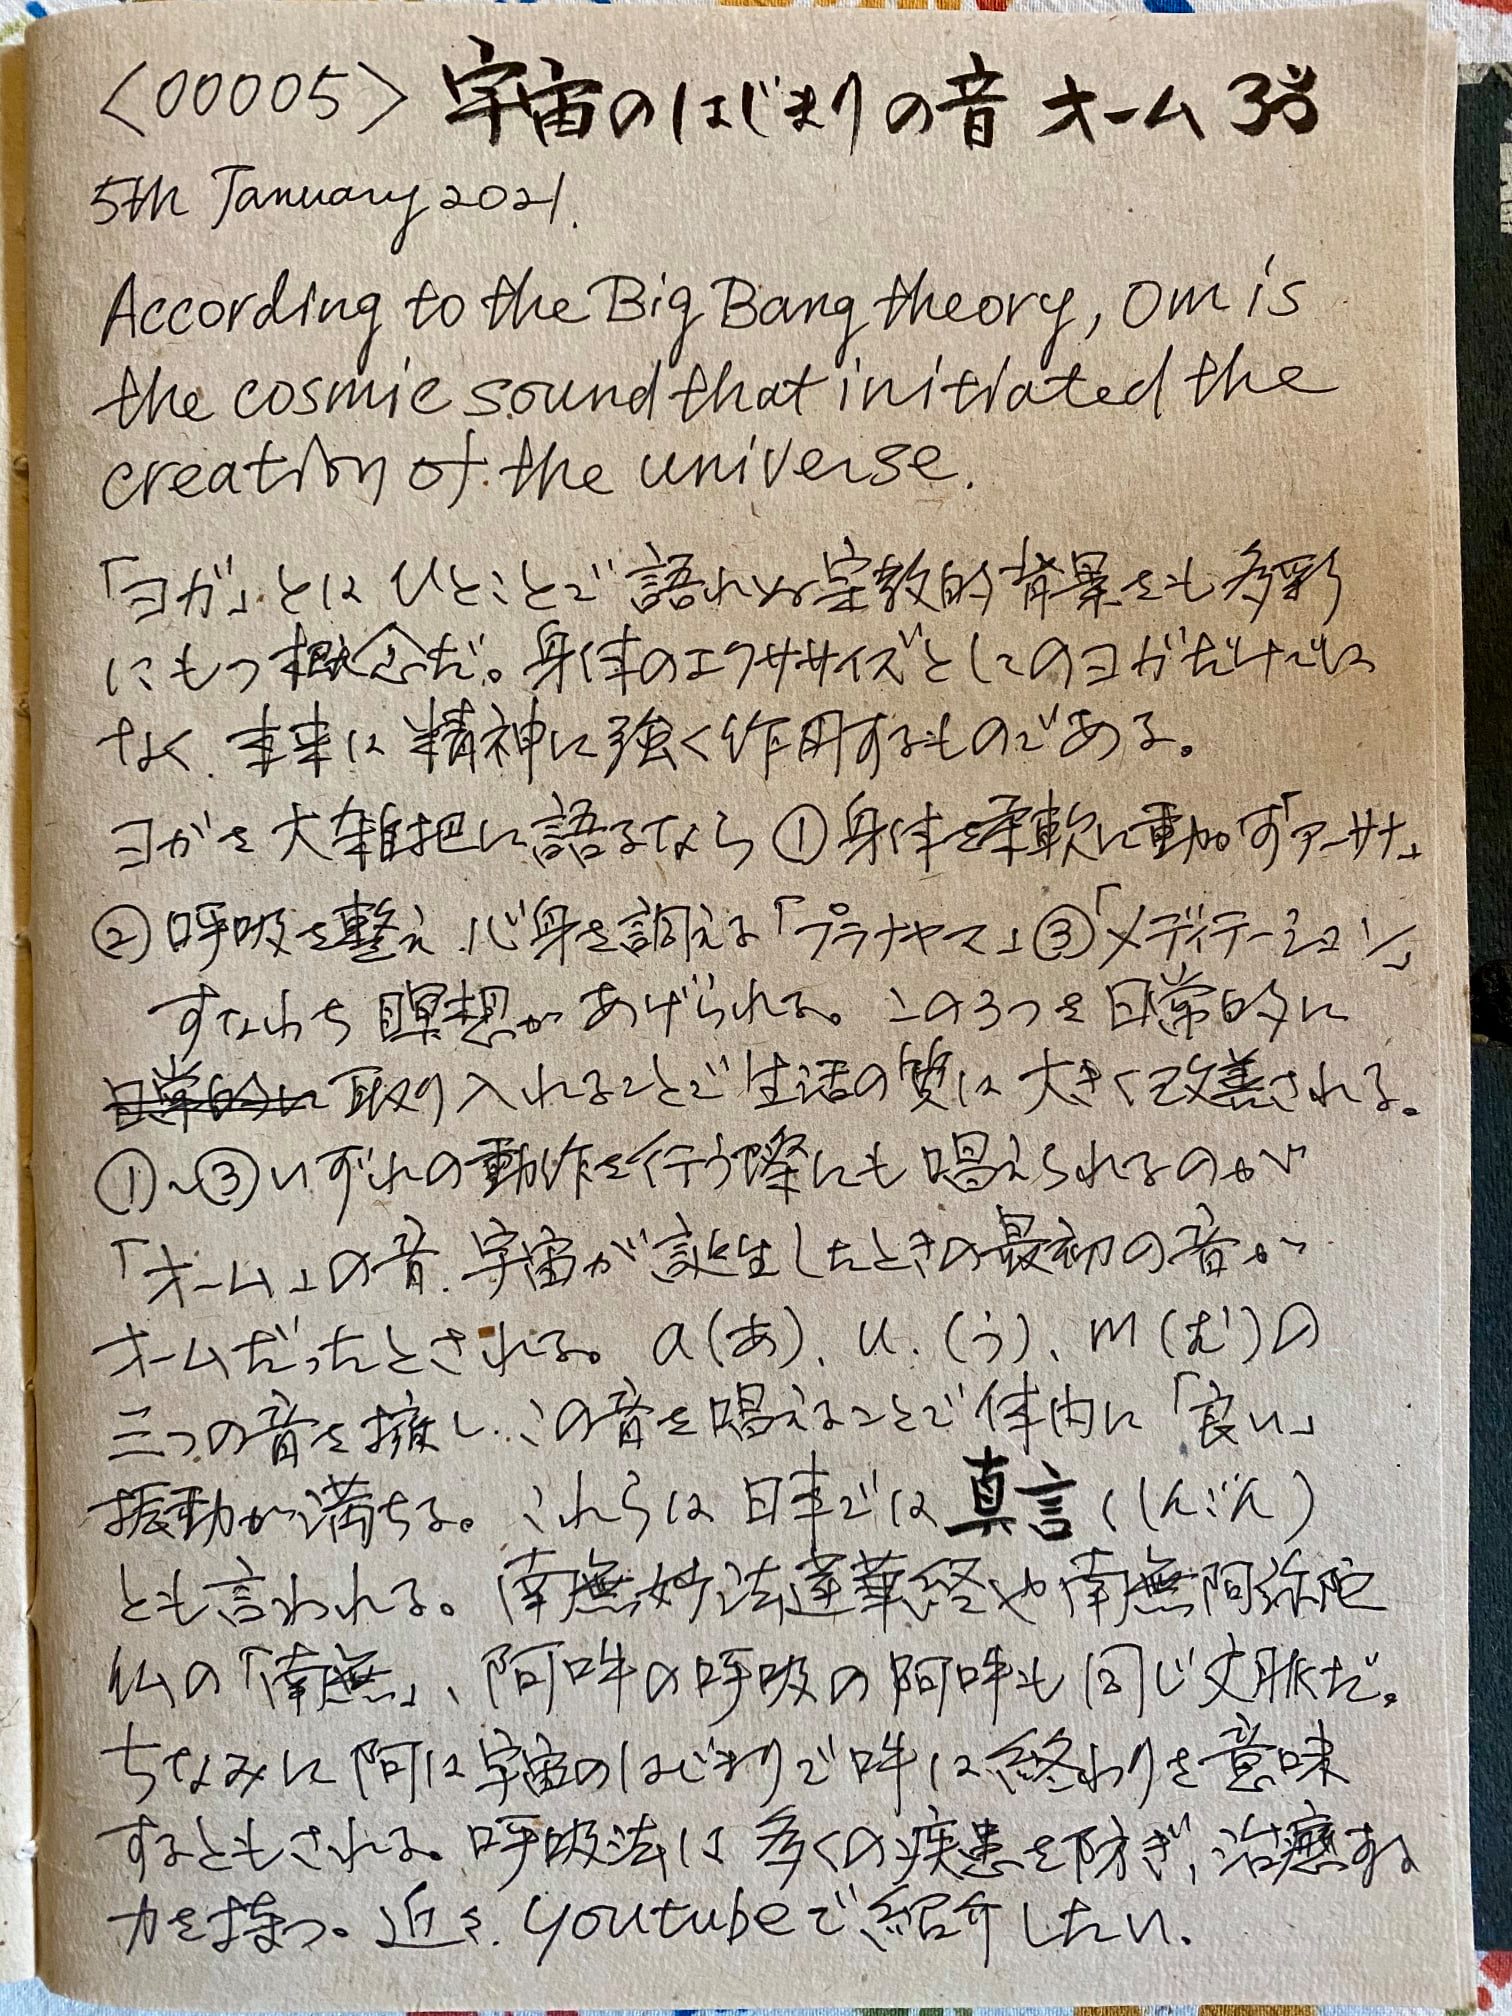 <00005> 宇宙のはじまりの音 オーム ॐ
5th January 2021.
According to the Big Bang theory, Om is
the cosmic sound that initiated the
creation of the universe.
「ヨガ」とは ひとことで語れぬ宗教的背景をも多彩
にもつ概念だ。身体のエクササイズとしてのヨガだけでは
なく、本来は精神に強く作用するものである。
ヨガを大雑把に語るなら ①身体を柔軟に動かす「アーサナ」
②呼吸を整え、心身を調える「プラナヤマ」③「メディテーション」
すなわち瞑想があげられる。この3つを日常的に
日常的に取り入れることで生活の質は大きく改善される。
①〜③いずれの動作を行う際にも唱えられるのが
「オーム」の音。宇宙が誕生したときの最初の音が
オームだったとされる。a(あ)、u.(う)、m(む)の
三つの音を擁し、この音を唱えることで体内に「良い」
振動が満ちる。これらは日本では真言(しんごん)
とも言われる。南無妙法蓮華経や南無阿弥陀
仏の「南無」、阿吽の呼吸の阿吽も同じ文脈だ。
ちなみに阿は宇宙のはじまりで吽は終わりを意味
するともされる。呼吸法は多くの疾患を防ぎ、治癒する
力を持つ。近々、youtubeで紹介したい。